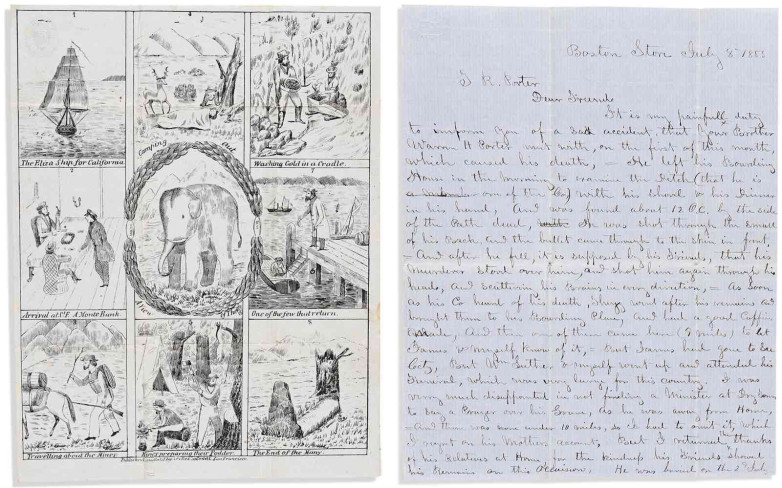 1
The Eliza Ship for California.
Camping Out
Washing Gold in a Cradle.
Arrival at St F. A Monte Bank.
A View of The
One of the few that return.
Travelling about the Mines
Boys preparing their Fodder
The End of the Many
San Francisco
Boston Store July 8th
J. R. Porter
Dear Friend
It is my painfull duty
to inform you of a sad accident, that your Brother
Warren H Porter met with, on the first of this month
which caused his death, He left his Boarding
House in the Morning to examine the Ditch (that he is
one of the Co) with his Shovel & his Dinner
in his hand, And was found about 12 O.C. by the side
of the Path dead, He was shot through the small
of his Back, and the bullet came through to the skin in front,
And after he fell, it is supposed by his Friends, that his
Murderer Stood over him, and shot him again through his
head, and Scattering his Brains in every direction, = As Soon
as his Co heard of his death they went after his remains and
brought them to his Boarding Place, And had a good Coffin
made, And then one of them came here (9 miles) to let
James & myself know of it, = But James had gone to Sac
City, But Mr Luther & myself went up and attended his
Funeral, which was very large, for this country, I was
very much disappointed in not finding a Minister at
to say a Prayer over his Grave, as he was away from Home,
And there was none under 10 miles, so I had to omit it, which
I regret on his Mothers account, But I returned thanks
of his Relatives at Home, for the kindness his Friends Showed
his Remains on this Occasion, He was buried on the 2d July